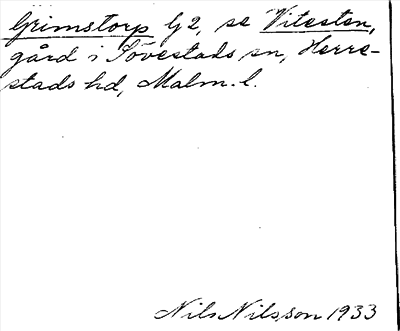 Grimstorp G 2, se Vitesten,
gård i Sövestads sn, Herre-
stads hd, Malm. l.
Nils Nilsson 1933